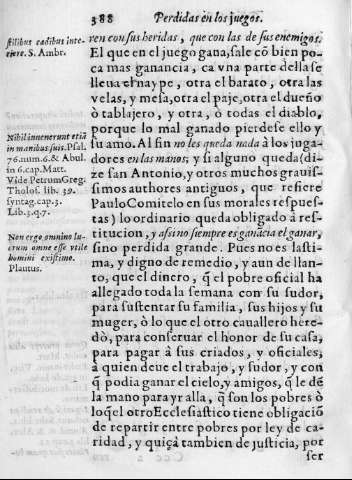 388 Perdidas en los juegos.
ſtilibus cadibus inte-
riere. S. Ambr.
Nihil inuenerunt etiã
in manibus ſuis. Pſal.
76. num. 6. & Abul.
in 6. cap. Matt.
Vide Petrum Greg.
Tholoſ. lib. 39.
ſyntag. cap. 3.
Lib. 3. q. 7.
Non ergo omnino lu-
crum omne eſſe vtile
homini exiſtimo.
Plautus.
ren con ſus heridas, que con las de ſus enemigos.
El que en el juego gana, ſale cõ bien po-
ca mas ganancia, ca vna parte della ſe
lleua el naype, otra el barato, otra las
velas, y meſa, otra el paje, otra el dueño
ò tablajero, y otra, ò todas el diablo,
porque lo mal ganado pierdeſe ello y
ſu amo. Al fin no les queda nada à los juga-
dores en las manos; y ſi alguno queda (di-
ze ſan Antonio, y otros muchos grauiſ-
ſimos authores antiguos, que refiere
Paulo Comitelo en ſus morales reſpueſ-
tas) lo ordinario queda obligado à reſ-
titucion, y aſsi no ſiempre es ganãcia el ganar,
ſino perdida grande. Pues no es laſti-
ma, y digno de remedio, y aun de llan-
to, que el dinero, q̃ el pobre oficial ha
allegado toda la ſemana con ſu ſudor,
para ſuſtentar ſu familia, ſus hijos y ſu
muger, ò lo que el otro cauallero here-
dò, para conſeruar el honor de ſu caſa,
para pagar à ſus criados, y oficiales,
à quien deue el trabajo, y ſudor, y con
q̃ podia ganar el cielo, y amigos, q̃ le dẽ
la mano para yr alla, q̃ ſon los pobres ò
lo q̃l otro Ecleſiaſtico tiene obligaciõ
de repartir entre pobres por ley de ca-
ridad, y quiçà tambien de juſticia, por
ſer